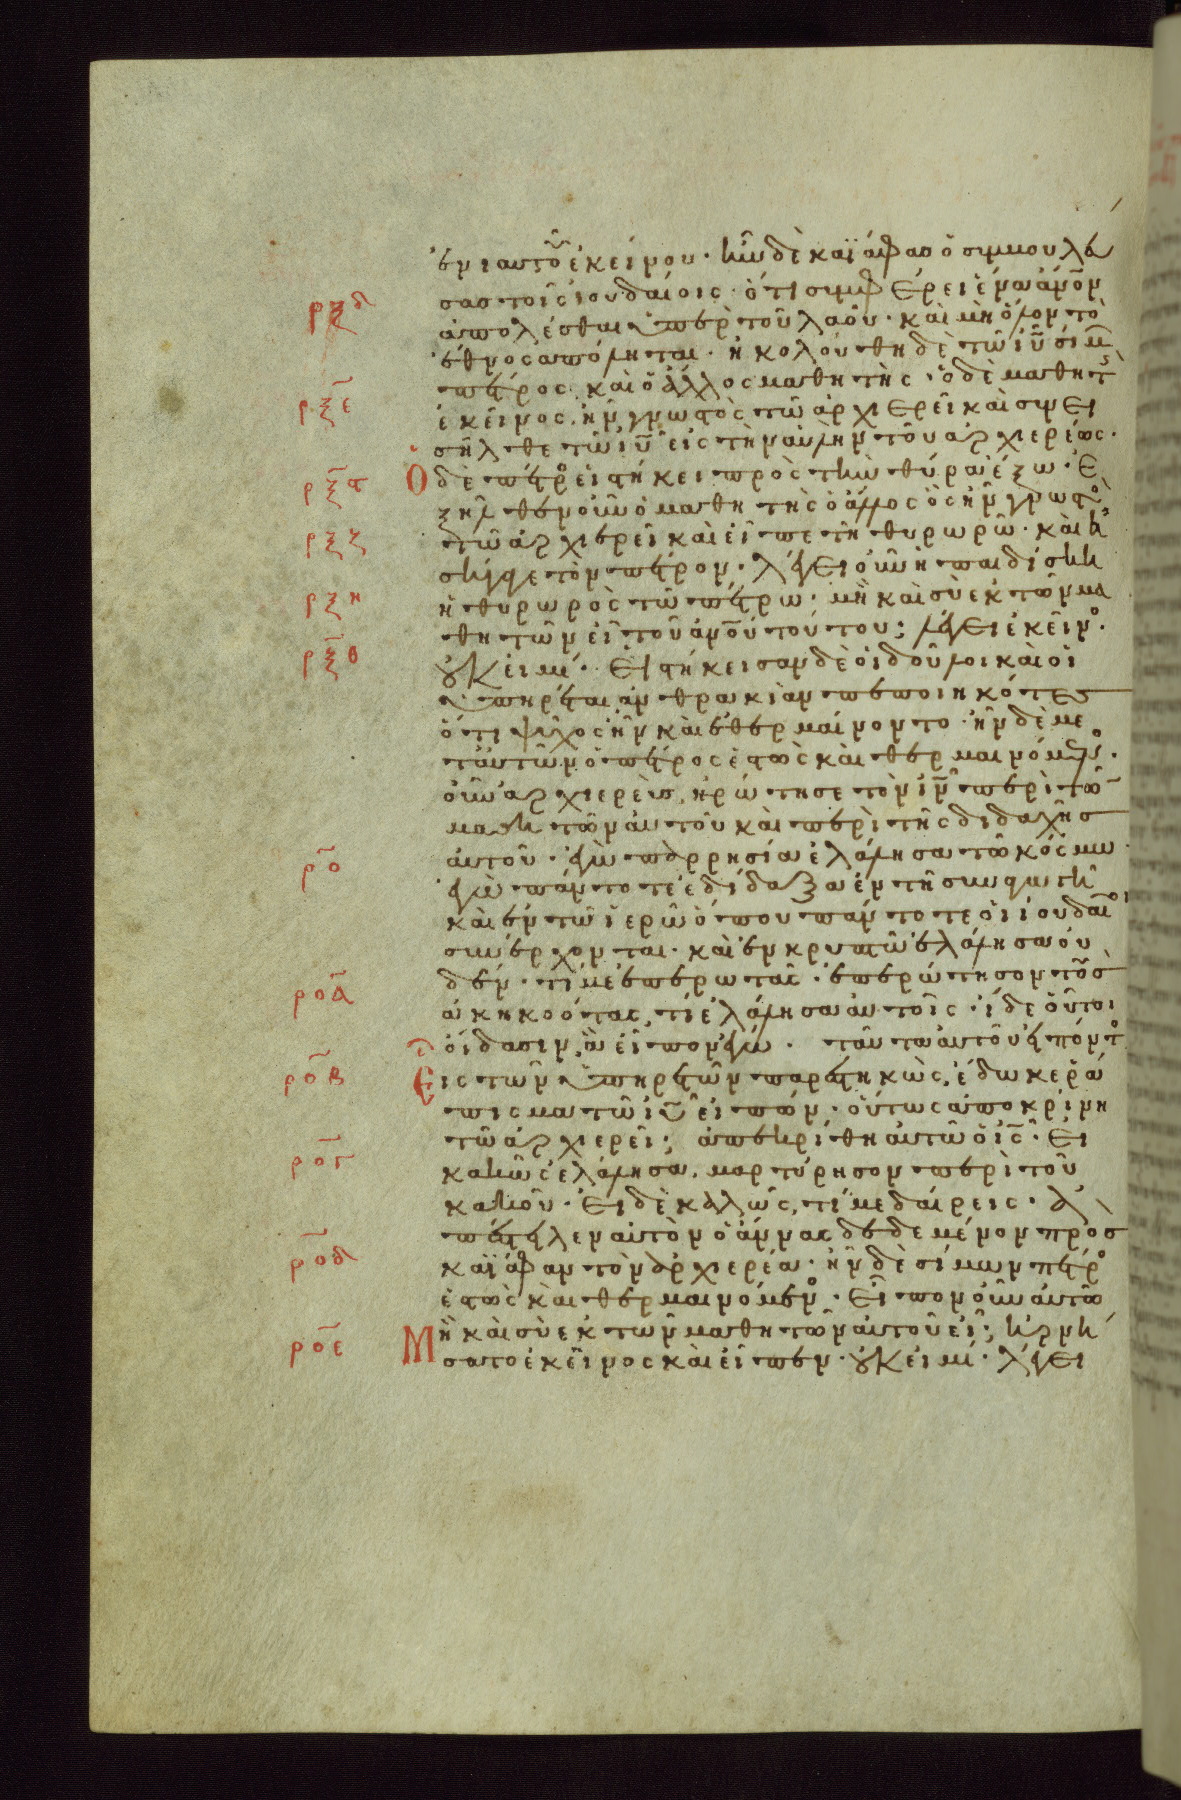 ἐνιαυτοῦ ἐκείνου · ἦν δὲ καϊάφας ὁ συμβουλεύ
σας τοῖς ἰουδαίοις · ὅτι συμφέρει ἕνα ἄνον
ρξδ ἀπολέσθαι ὑπὲρ τοῦ λαοῦ · καὶ μὴ ὅλον τὸ
ἔθνος ἀπόληται · ἠκολούθη δὲ τῶ ἰῦ σίμ
ρξε πέτρος καὶ ὁ ἄλλος μαθητὴς · ὁ δὲ μαθητ
ἐκεῖνος, ἦν γνωστὸς τῶ ἀρχιερεῖ καὶ συνει
σῆλθε τῶ ἰῦ εἰς τὴν αὐλὴν τοῦ ἀρχιερέως ·
ρξϛ Ὁ δὲ πέτρο εἱστήκει πρὸς τὴν θύραν ἔξω · ἐ
ξῆλθεν οὖν ὁ μαθητὴς ὁ ἄλλος ὃς ἦν γνωστο
ρξζ τῶ ἀρχιερεῖ καὶ εἶπε τῆ θυρωρῶ · καὶ εἰ
σήγαγε τὸν πέτρον · λέγει οὖν ἡ παιδίσκη
ρξη ἡ θυρωρὸς τῶ πέτρω · μὴ καὶ σὺ ἐκ τῶν μα
θητῶν εἶ τοῦ ἀνοῦ τούτου; λέγει ἐκεῖνο ·
ρξθ οὐκ εἰμί · εἱστήκεισαν δὲ οἱ δοῦλοι καὶ οἱ
ὑπηρέται ἀνθρακιὰν πεποιηκότες
ὅτι ψῦχος ἦν καὶ ἐθερμαίνοντο · ἦν δὲ με
τ αὐτῶν ὁ πέτρος ἑστὼς καὶ θερμαινόμενο ·
οὖν ἀρχιερεὺς, ἠρώτησε τὸν ἰν περὶ τῶ
μαθητῶν αὐτοῦ καὶ περὶ τῆς διδαχῆς
ρο αὐτοῦ · ἐγὼ παρρησία ἐλάλησα τῶ κόσμω ·
ἐγὼ πάντοτε ἐδίδαξα ἐν τῆ συναγωγῆ
καὶ ἐν τῶ ἱερῶ ὅπου πάντοτε οἱ ἰουδαῖο
συνέρχονται · καὶ ἐν κρυπτῶ ἐλάλησα οὐ
ροα δέν · τί με ἐπερωτᾶς · ἐπερώτησον τοὺς
ἀκηκοότας, τί ἐλάλησα αὐτοῖς · ἴδε οὗτοι
οἴδασιν, ἃ εἶπον ἐγώ · ταῦτα αὐτοῦ εἰπόντο
ροβ Εἷς τῶν ὑπηρετῶν παρεστηκὼς, ἔδωκε ῥά
πισμα τῶ ἰῦ εἰπών · οὕτως ἀποκρίνη
ρογ τῶ ἀρχιερεῖ; ἀπεκρίθη αὐτῶ ὁ ἰς · εἰ
κακῶς ἐλάλησα, μαρτύρησον περὶ τοῦ
κακοῦ · εἰ δὲ καλῶς, τί με δαίρεις · ἀ
ροδ πέστειλεν αὐτὸν ὁ ἄννας δεδεμένον πρὸς
καϊάφαν τὸν ἀρχιερέα · ἦν δὲ σίμων πέτρο
ἑστὼς καὶ θερμαινόμενο · εἶπον οὖν αὐτῶ
ροε Μὴ καὶ σὺ ἐκ τῶν μαθητῶν αὐτοῦ εἶ; ἠρνή
σατο ἐκεῖνος καὶ εἶπεν · οὐκ εἰμί · λέγει